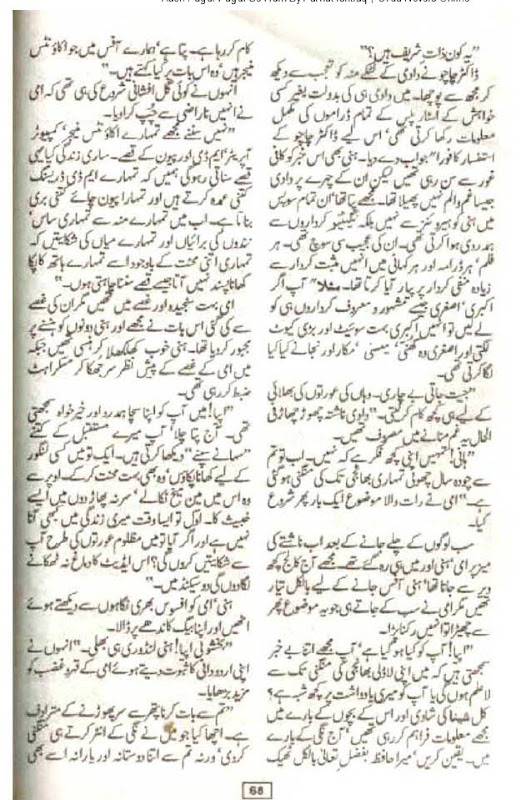 "یہ کون ذات شریف ہیں؟"
ڈاکٹر چاچو نے دادی کے لٹکے منہ کو تعجب سے دیکھ
کر مجھ سے پوچھا۔ میں دادی ہی کی بدولت بغیر کسی
خواہش کے اسٹار پلس کے تمام ڈراموں کی مکمل
معلومات رکھا کرتی تھی، اس لیے ڈاکٹر چاچو کے
استفسار کا فوراً جواب دے دیا۔ ہنی بھی اس خبر کو کافی
غور سے سن رہی تھیں لیکن ان کے چہرے پر دادی
جیسا غم و الم نہیں پھیلا تھا۔ مجھے پتا تھا ان تمام سوپس
میں ہنی کو ہیروئنز سے نہیں بلکہ نیگیٹیو کرداروں سے
ہمدردی ہوا کرتی تھی۔ ان کی عجیب سی سوچ تھی۔ ہر
فلم، ہر ڈرامہ اور ہر کہانی میں انہیں مثبت کردار سے
زیادہ منفی کردار پر پیار آیا کرتا تھا۔ مثلاً آپ اگر
اکبری اصغری جیسے مشہور و معروف کرداروں ہی کو
لے لیں تو انہیں اکبری بہت سویٹ اور بڑی کیوٹ
لگتی اور اصغری وہ گھنی، میسنی، مکار اور نجانے کیا کیا
لگا کرتی تھی۔
بے چاری۔ وہاں کی عورتوں کی بھلائی
کے لیے ہی کچھ کام کر لیتی۔" دادی ناشتہ چھوڑ چھاڑ فی
الحال یہ غم منانے میں مصروف تھیں۔
"ہانی! تمہیں اپنی کچھ فکر ہے کہ نہیں۔ اب تو تم
سے دو سال چھوٹی تمہاری بھانجی تک کی منگنی ہو گئی
ہے۔" امی نے رات والا موضوع ایک بار پھر شروع
کیا۔
سب لوگوں کے چلے جانے کے بعد اب ناشتے کی
میز پر امی، ہنی اور میں ہی رہ گئے تھے۔ مجھے آج کالج کچھ
دیر سے جانا تھا، ہنی آفس جانے کے لیے بالکل تیار
تھیں مگر امی نے سب کے جاتے ہی جو یہ موضوع پھر
سے چھیڑا تو انہیں رکنا پڑا۔
"اپیا! آپ کو کیا ہو گیا ہے، آپ مجھے اتنا بے خبر
سمجھتی ہیں کہ میں اپنی لاڈلی بھانجی کی منگنی تک سے
لاعلم ہوں گی یا آپ کو میری یادداشت پر کچھ شبہ ہے؟
کل شینا کی شادی اور اس کے بچوں کے بارے میں
مجھے معلومات فراہم کر رہی تھیں، آج نگی کے بارے
میں۔ یقین کریں، میرا حافظہ بفضل تعالیٰ بالکل ٹھیک
کام کر رہا ہے۔ پتا ہے، ہمارے آفس میں جو اکاؤنٹس
منیجر ہیں، وہ اس بات پر کیا کہتے ہیں۔"
انہوں نے کوئی گل افشانی شروع کی ہی تھی کہ امی
نے انہیں ناراضی سے چپ کرا دیا۔
"نہیں سننے مجھے تمہارے اکاؤنٹس منیجر، کمپیوٹر
آپریٹر، ایم ڈی اور پیون کے قصے۔ ساری زندگی کیا یہی
قصے سناتی رہو گی ہمیں کہ تمہارے ایم ڈی ڈریسنگ
کتنی عمدہ کرتے ہیں اور تمہارا پیون چائے کتنی بری
بناتا ہے۔ اب میں تمہارے منہ سے تمہاری ساس،
نندوں کی برائیاں اور تمہارے میاں کی شکایتیں کہ
تمہاری اتنی محنت کے باوجود اسے تمہارے ہاتھ کا پکا
کھانا پسند نہیں آتا جیسے قصے سننا چاہتی ہوں۔"
امی بہت سنجیدہ اور غصے میں تھیں مگر ان کی غصے
سے کی گئی اس بات نے مجھے اور ہنی دونوں کو ہنسنے پر
مجبور کر دیا تھا۔ ہنی خوب کھلکھلا کر ہنسی تھیں جبکہ
میں امی کے غصے کے پیش نظر سر جھکا کر مسکراہٹ
ضبط کر رہی تھی۔
"اپیا! میں آپ کو اپنا سچا ہمدرد اور خیر خواہ سمجھتی
تھی۔ آج پتا چلا آپ میرے مستقبل کے کتنے
"سہانے سپنے" دیکھا کرتی ہیں۔ ایک تو میں کسی لنگور
کے لیے کھانا پکاؤں، وہ بھی بہت محنت کر کے۔ اوپر سے
وہ اس میں مین میخ نکالے، سر نہ پھاڑ دوں میں ایسے
خبیث کا۔ اول تو ایسا وقت میری زندگی میں کبھی آنا
نہیں ہے اور اگر آیا تو میں مظلوم عورتوں کی طرح آپ
سے شکایتیں کروں گی؟ اس ایڈیٹ کا دماغ نہ ٹھکانے
لگا دوں گی دو سیکنڈ میں۔"
ہنی، امی کو افسوس بھری نگاہوں سے دیکھتے ہوئے
اٹھیں اور اپنا بیگ کاندھے پر ڈالا۔
"بخشو بی اپیا! ہنی لنڈوری ہی بھلی۔" انہوں نے
اپنی اردو دانی کا ثبوت دیتے ہوئے امی کے قہر و غضب کو
مزید بڑھایا۔
"تم سے بات کرنا پتھر سے سر پھوڑنے کے مترادف
ہے۔ اچھا کیا جو میں نے نگی کے انٹر کرتے ہی منگنی
کر دی، ورنہ تم سے اتنا دوستانہ اور یارانہ اسے بھی
68